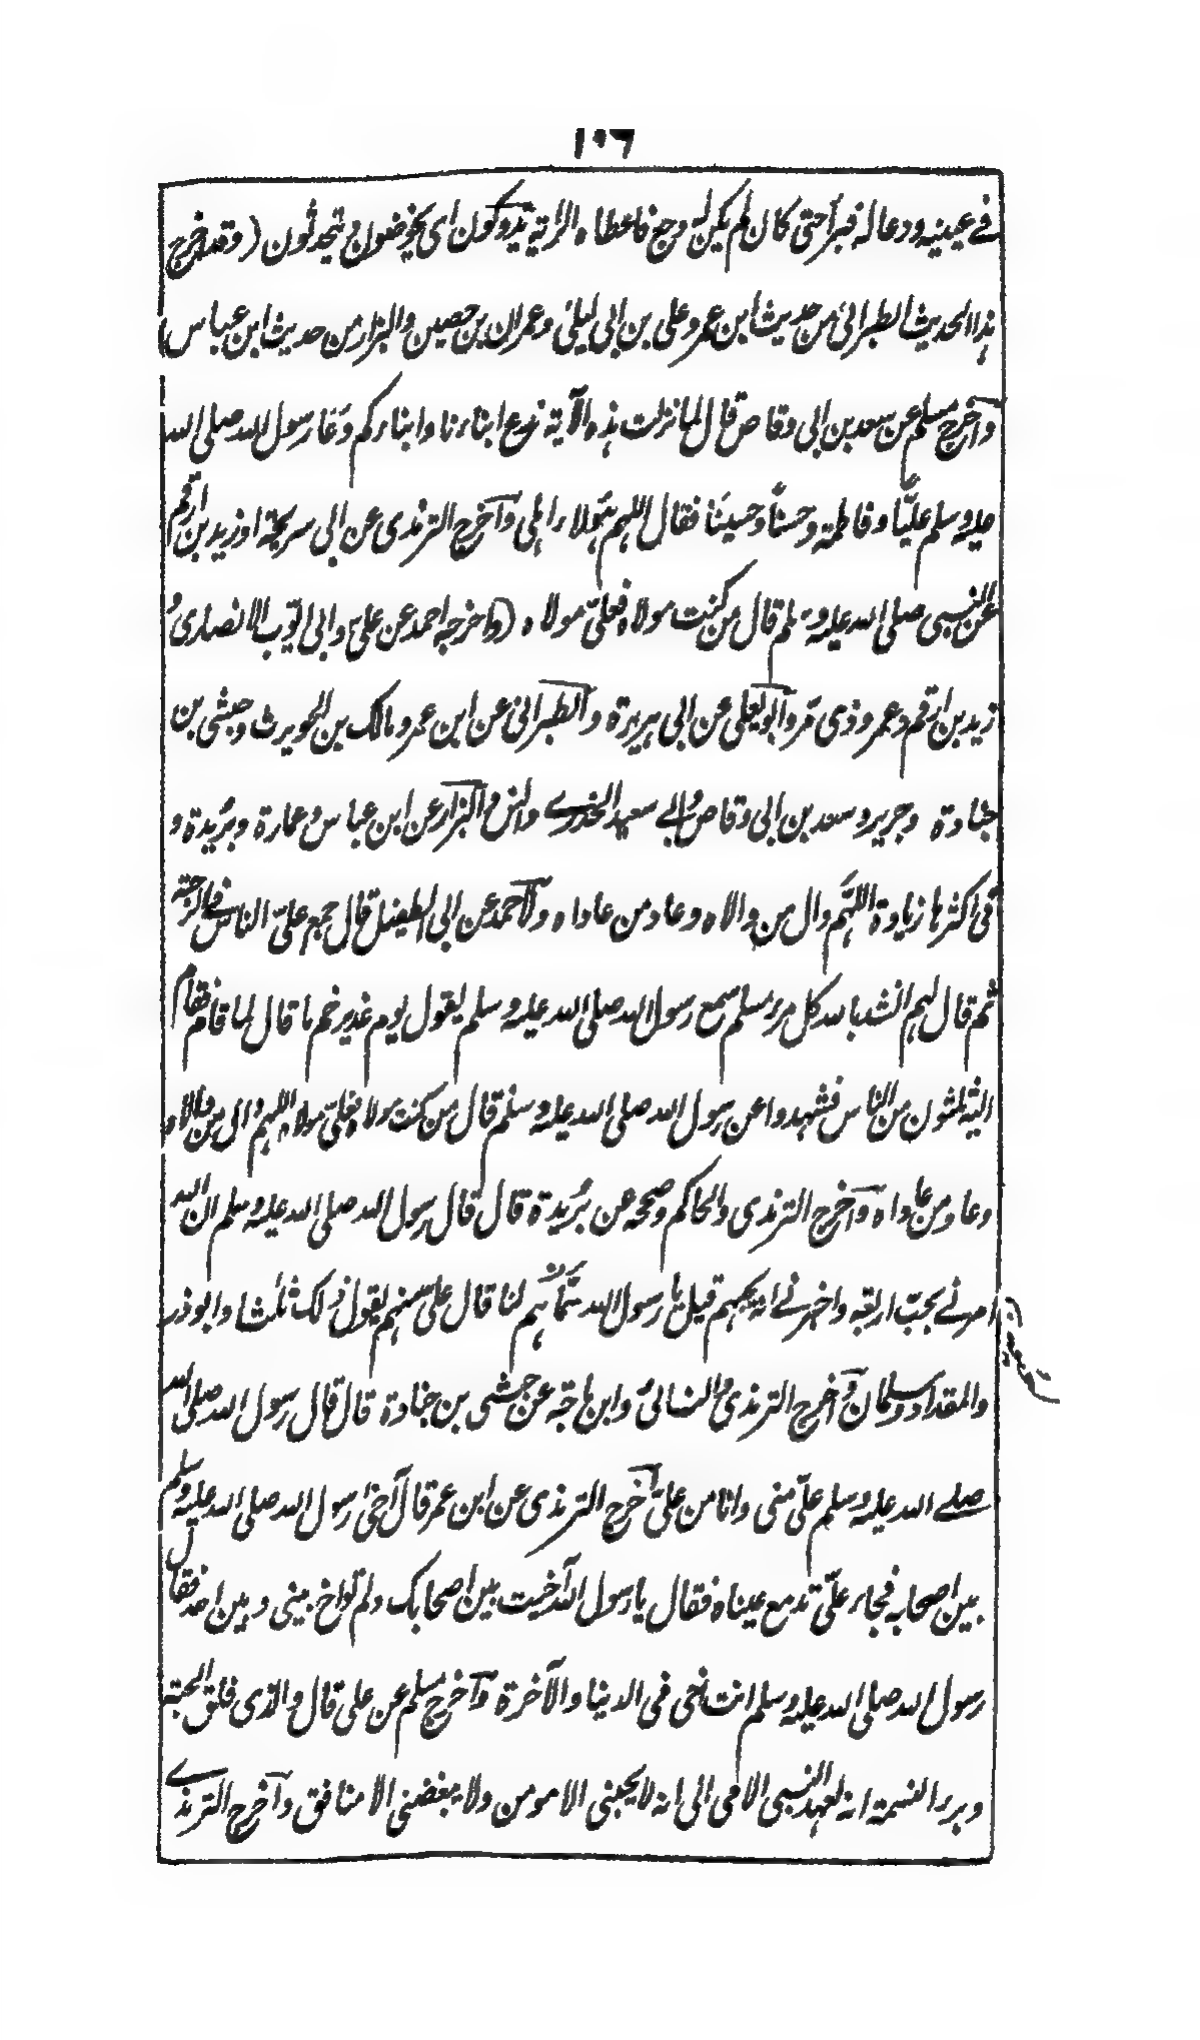 ١٠٦
في عينيه ودعا له فبرأ حتى كان لم يكن له وجع فاعطاه الراية يدوكون اى يخوضون ويتحدثون (وقد اخرج
هذا الحديث الطبراني من حديث ابن عمر وعلي بن ابي ليلى وعمران بن حصين والبزار من حديث ابن عباس)
وأخرج مسلم عن سعد بن ابي وقاص قال لما نزلت هذه الآية ندع ابناءنا وابناءكم دعا رسول الله صلى الله
عليه وسلم عليًّا وفاطمة وحسنًا وحسينًا فقال اللهم هؤلاء اهلى وأخرج الترمذى عن ابى سريحة او زيد بن ارقم
عن النبي صلى الله عليه وسلم قال من كنت مولاه فعليّ مولاه (واخرجه احمد عن علي وابى ايوب الانصارى و
زيد بن ارقم وعمرو ذى مر وأبو يعلى عن ابى هريرة والطبرانى عن ابن عمر ومالك بن الحويرث وحبشى بن
جنادة وجرير وسعد بن ابى وقاص وابي سعيد الخدرے وانس والبزار عن ابن عباس وعمارة وبريدة و
فى اكثرها زيادة اللهم وال من والاه وعاد من عاداه ولأحمد عن ابى الطفيل قال جمع عليّ الناس فے الرحبة
ثم قال لهم انشد بالله كل مرء مسلم سمع رسول الله صلى الله عليه وسلم يقول يوم غدير خم ما قال لما قام فقام
اليه ثلثون من الناس فشهدوا عن رسول الله صلى الله عليه وسلم قال من كنت مولاه فعليّ مولاه اللهم وال من والاه و
عاد من عاداه وأخرج الترمذى والحاكم وصححه عن بريدة قال قال رسول الله صلى الله عليه وسلم ان الله
امرنے بحب اربعة واخبرنے انه يحبهم قيل يا رسول الله سمّهم لنا قال عليّ منهم يقول ذلك ثلثا وابو ذر
والمقداد وسلمان وأخرج الترمذى والنسائى وابن ماجة عن حبشى بن جنادة قال قال رسول الله صلى الله
صلے الله عليه وسلم عليّ منى وانا من عليّ أخرج الترمذى عن ابن عمر قال آخى رسول الله صلى الله عليه وسلم
بين اصحابه فجاء عليّ تدمع عيناه فقال يا رسول الله آخيت بين اصحابك ولم تواخ بينى وبين احد فقال
رسول الله صلى الله عليه وسلم انت اخى فى الدنيا والآخرة وأخرج مسلم عن على قال والذى فلق الحبة
وبرء النسمة انه لعهد النبى الامى الى انه لا يحبنى الا مومن ولا يبغضنى الا منافق وأخرج الترمذے